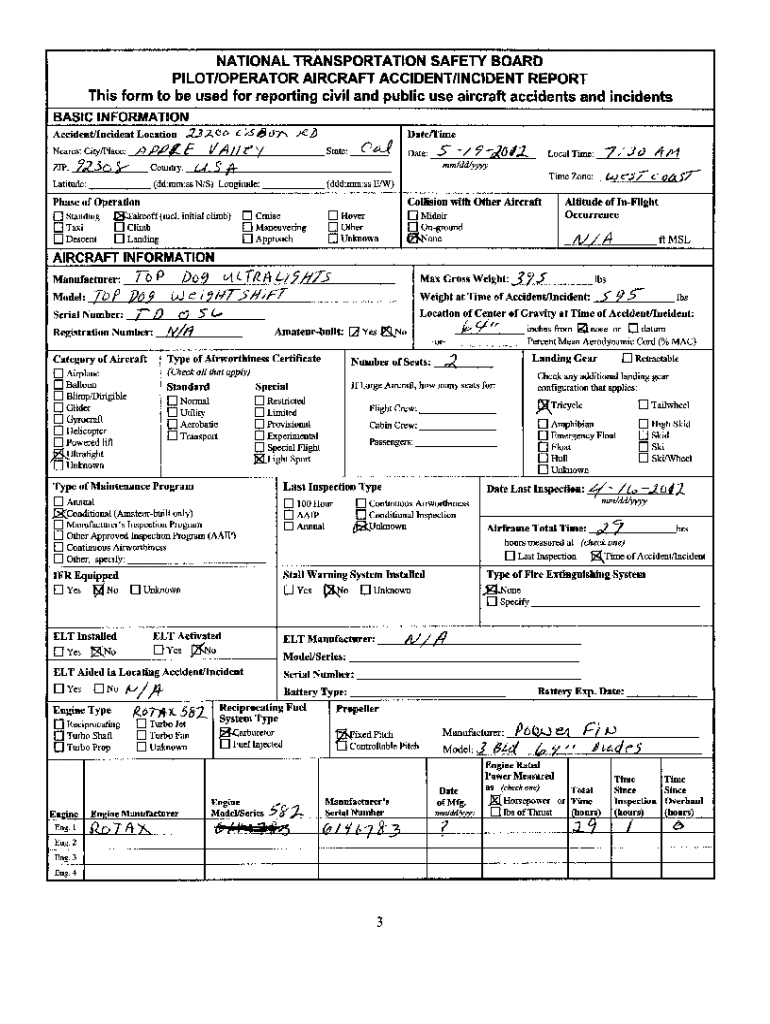 NATIONAL TRANSPORTATION SAFETY BOARD
PILOT/OPERATOR AIRCRAFT ACCIDENT/INCIDENT REPORT
This form to be used for reporting civil and public use aircraft accidents and incidents
BASIC INFORMATION
Accident/Incident Location 23200 Lisbon RD
Nearest City/Place: APPLE VAlleY State: Cal
ZIP: 92308 Country: U.S.A
Latitude: (dd:mm:ss N/S) Longitude: (ddd:mm:ss E/W)
Date/Time
Date: 5-19-2012 Local Time: 7:30 AM
mm/dd/yyyy
Time Zone: WEST COAST
Phase of Operation
Standing Takeoff (incl. initial climb) Cruise Hover
Taxi Climb Maneuvering Other
Descent Landing Approach Unknown
Collision with Other Aircraft
Midair
On-ground
None
Altitude of In-Flight
Occurrence
N/A ft MSL
AIRCRAFT INFORMATION
Manufacturer: TOP Dog ULTRALIGHTS
Model: TOP Dog WEIGHT SHIFT
Serial Number: TD 056
Registration Number: N/A Amateur-built: Yes No
Max Gross Weight: 395 lbs
Weight at Time of Accident/Incident: 595 lbs
Location of Center of Gravity at Time of Accident/Incident:
64" inches from nose or datum
-or- Percent Mean Aerodynamic Cord (% MAC)
Category of Aircraft
Airplane
Balloon
Blimp/Dirigible
Glider
Gyrocraft
Helicopter
Powered lift
Ultralight
Unknown
Type of Airworthiness Certificate
(Check all that apply)
Standard Special
Normal Restricted
Utility Limited
Acrobatic Provisional
Transport Experimental
Special Flight
Light Sport
Number of Seats: 2
If Large Aircraft, how many seats for:
Flight Crew:
Cabin Crew:
Passengers:
Landing Gear Retractable
Check any additional landing gear
configuration that applies:
Tricycle Tailwheel
Amphibian High Skid
Emergency Float Skid
Float Ski
Hull Ski/Wheel
Unknown
Type of Maintenance Program
Annual
Conditional (Amateur-built only)
Manufacturer's Inspection Program
Other Approved Inspection Program (AAIP)
Continuous Airworthiness
Other, specify:
Last Inspection Type
100 Hour Continuous Airworthiness
AAIP Conditional Inspection
Annual Unknown
Date Last Inspection: 4-16-2012
mm/dd/yyyy
Airframe Total Time: 29 hrs
hours measured at (check one)
Last Inspection Time of Accident/Incident
IFR Equipped
Yes No Unknown
Stall Warning System Installed
Yes No Unknown
Type of Fire Extinguishing System
None
Specify
ELT Installed ELT Activated
Yes No Yes No
ELT Aided in Locating Accident/Incident
Yes No N/A
ELT Manufacturer: N/A
Model/Series:
Serial Number:
Battery Type: Battery Exp. Date:
Engine Type ROTAX 582
Reciprocating Turbo Jet
Turbo Shaft Turbo Fan
Turbo Prop Unknown
Reciprocating Fuel
System Type
Carburetor
Fuel Injected
Propeller
Fixed Pitch
Controllable Pitch
Manufacturer: Power Fin
Model: 3 Bld 64" Blades
Engine Engine Manufacturer
Engine
Model/Series 582
Manufacturer's
Serial Number
Date
of Mfg.
mm/dd/yyyy
Engine Rated
Power Measured
as (check one)
Horsepower or
lbs of Thrust
Total
Time
(hours)
Time
Since
Inspection
(hours)
Time
Since
Overhaul
(hours)
Eng. 1 ROTAX 6146783 ? 29 1 0
Eng. 2
Eng. 3
Eng. 4
3